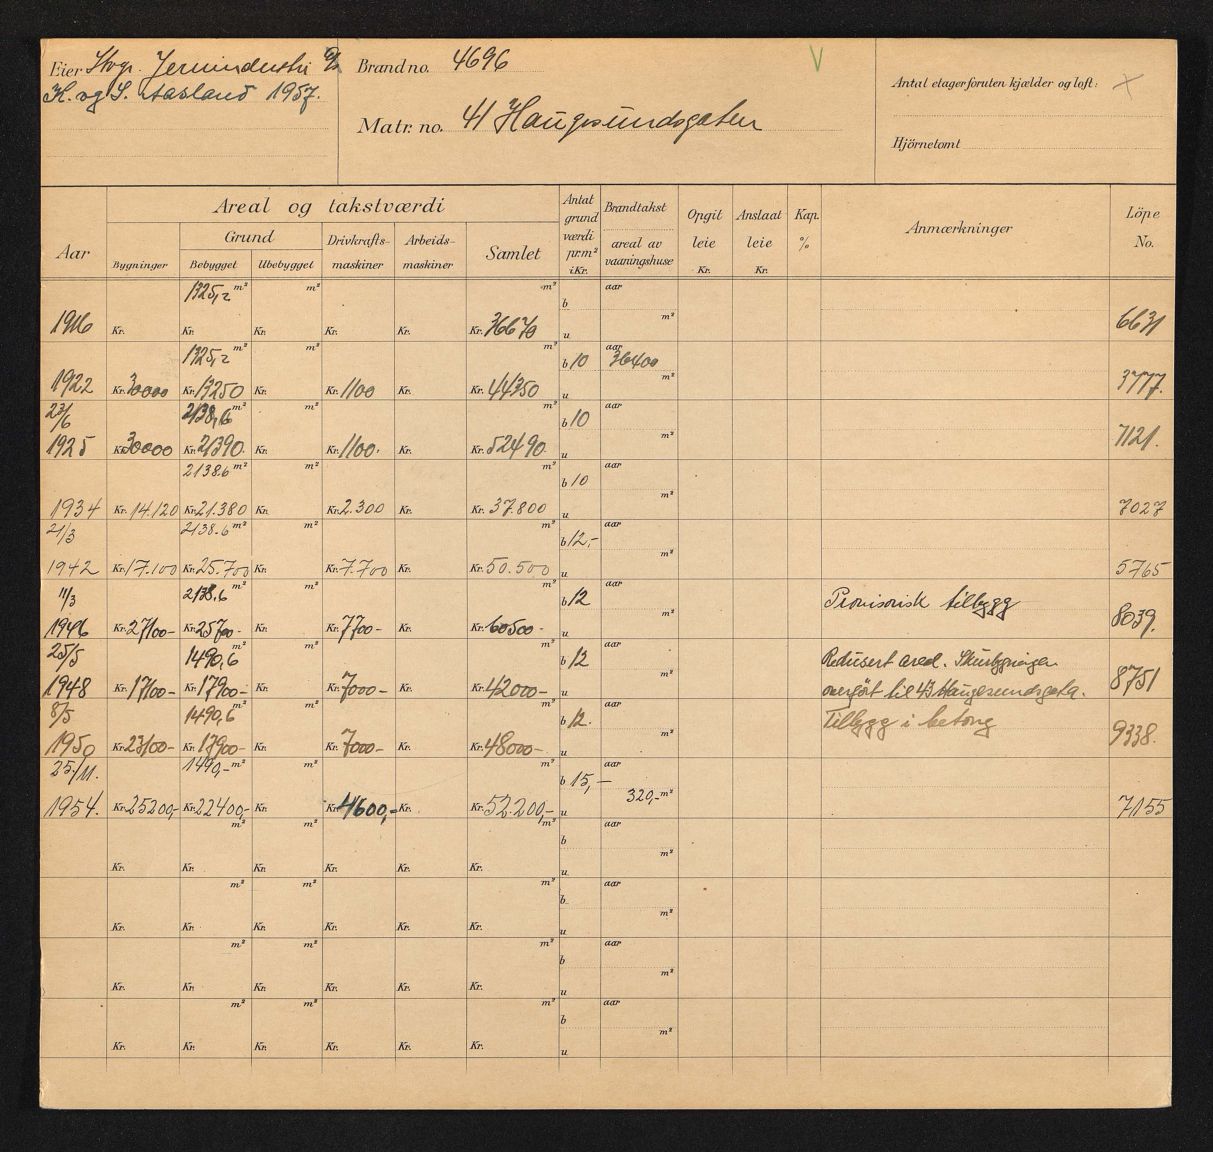 Eier Stvgr. Jernindustri A/S
K. og S. Aasland 1957.
Brand no. 4696
Matr. no. 41 Haugesundsgaten
Antal etager foruten kjælder og loft:
Hjörnetomt
Aar
Areal og takstværdi
Bygninger
Grund
Bebygget Ubebygget
Drivkrafts-maskiner
Arbeids-maskiner
Samlet
Antat grund værdi pr. m² i Kr.
Brandtakst
areal av vaaningshuse
Opgit leie Kr.
Anslaat leie Kr.
Kap. %
Anmærkninger
Löpe No.
1325,2 m² m² m² b aar
1916 Kr. Kr. Kr. Kr. Kr. Kr. 36670 u m² 6631
1325,2 m² m² m² b 10 aar 36400
1922 Kr. 30000 Kr. 13250 Kr. Kr. 1100 Kr. Kr. 44350 u m² 3777.
23/6 2138,6 m² m² m² b 10 aar
1925 Kr. 30000 Kr. 21390. Kr. Kr. 1100. Kr. Kr. 52490. u m² 7121.
2138.6 m² m² m² b 10 aar
1934 Kr. 14.120 Kr. 21.380 Kr. Kr. 2.300 Kr. Kr. 37.800 u m² 7027
21/3 2138.6 m² m² m² b 12,- aar
1942 Kr. 17.100 Kr. 25.700 Kr. Kr. 7.700 Kr. Kr. 50.500 u m² 5765
11/3 2138,6 m² m² m² b 12 aar Provisorisk tilbygg
1946 Kr. 27100- Kr. 25700- Kr. Kr. 7700- Kr. Kr. 60500- u m² 8039.
25/5 1490,6 m² m² m² b 12 aar Redusert areal. Skurbygningen
1948 Kr. 17100- Kr. 17900- Kr. Kr. 7000- Kr. Kr. 42000- u m² overfört til 43 Haugesundsgata. 8751
8/5 1490,6 m² m² m² b 12. aar Tilbygg i betong
1950 Kr. 23100- Kr. 17900- Kr. Kr. 7000- Kr. Kr. 48000- u m² 9338.
25./11. 1490,- m² m² m² b 15,- aar
1954. Kr. 25200,- Kr. 22400,- Kr. Kr. 4600,- Kr. Kr. 52.200,- u 320,- m² 7155
m² m² m² b aar
Kr. Kr. Kr. Kr. Kr. Kr. u m²
m² m² m² b aar
Kr. Kr. Kr. Kr. Kr. Kr. u m²
m² m² m² b aar
Kr. Kr. Kr. Kr. Kr. Kr. u m²
m² m² m² b aar
Kr. Kr. Kr. Kr. Kr. Kr. u m²